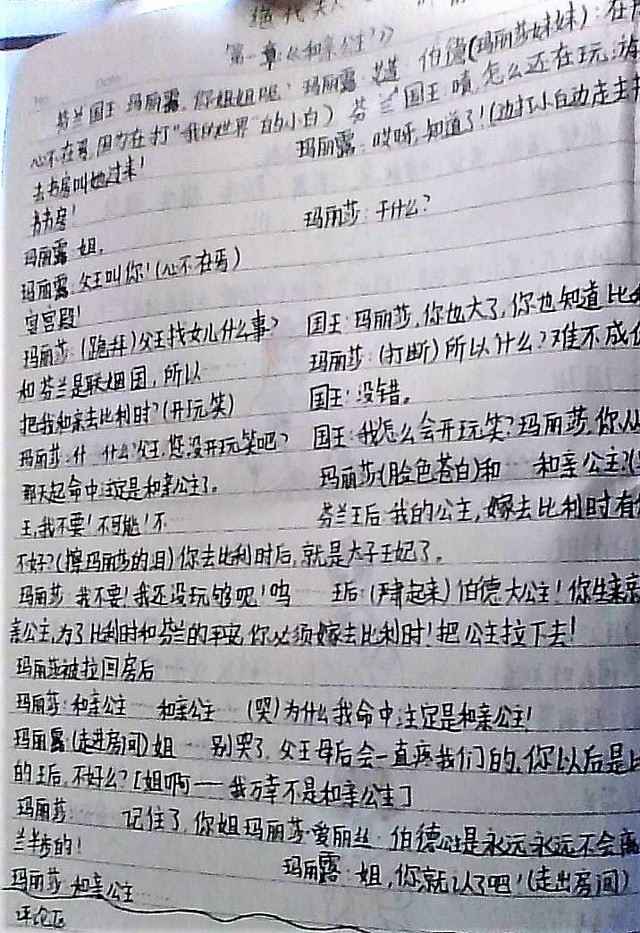 绝代夫
第一章《和亲公主》
芬兰国王:玛丽露,你姐姐呢?玛丽露·芝芝·伯德(玛丽莎妹妹):在房
心不在焉,因为在打“我的世界”的小白)芬兰国王:啧,怎么还在玩,
玛丽露:哎呀,知道了!(边打小白边走去书
去书房叫她过来!
书房!
玛丽莎:干什么?
玛丽露:姐,
玛丽露:父王叫你!(心不在焉)
皇宫殿!
玛丽莎:(跪拜)父王找女儿什么事? 国王:玛丽莎,你也大了,你也知道比利
和芬兰是联姻国,所以 玛丽莎:(打断)所以什么?难不成你
把我和亲去比利时?(开玩笑) 国王:没错。
玛丽莎:什 什么?父王,您没开玩笑吧? 国王:我怎么会开玩笑?玛丽莎,你从
那天起命中注定是和亲公主了。 玛丽莎:(脸色苍白)和…和亲公主?
王,我不要!不可能!不… 芬兰王后:我的公主,嫁去比利时有
不好?(擦玛丽莎的泪)你去比利时后,就是太子王妃了。
玛丽莎:我不要!我还没玩够呢!呜 王后:(严肃起来)伯德大公主!你生来
亲公主,为了比利时和芬兰的平安,你必须嫁去比利时!把公主拉下去!
玛丽莎被拉回房后
玛丽莎:和亲公主……和亲公主……(哭)为什么我命中注定是和亲公主!
玛丽露:(走进房间)姐……别哭了,父王母后会一直疼我们的,你以后是比
的王后,不好么?[姐啊——我万幸不是和亲公主]
玛丽莎:…… 记住了,你姐玛丽莎·爱丽丝·伯德公主是永远永远不会离
兰半步的!
玛丽露:姐,你就认了吧!(走出房间)
玛丽莎:和亲公主……
评论区